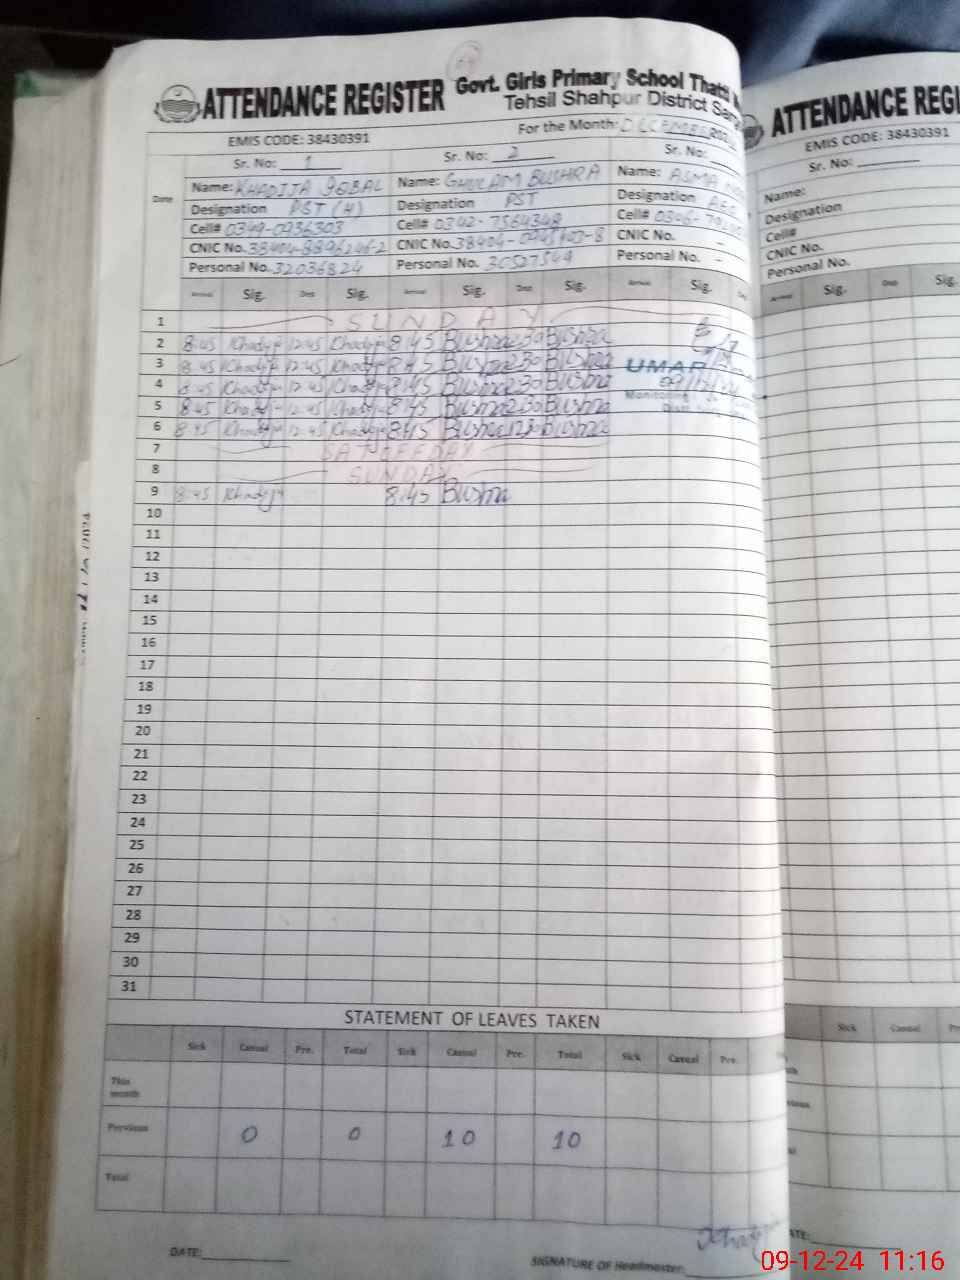 ATTENDANCE REGISTER Govt. Girls Primary School Thatti
Tehsil Shahpur District
EMIS CODE: 38430391 For the Month: DECEMBER
Sr. No: 1 Sr. No: 2 Sr. No:
Date
Name: KHADIJA IQBAL Name: GHULAM BUSHRA Name: ASMA
Designation PST (H) Designation PST Designation
Cell# 0349-0936303 Cell# 0342-7564349 Cell#
CNIC No. CNIC No. CNIC No. -
Personal No. 32036824 Personal No. 30527549 Personal No. -
Arrival Sig. Dep. Sig. Arrival Sig. Dep. Sig. Arrival Sig.
1 SUNDAY
2 8:45 Khadija 12:45 Khadija 8:45 Bushra 12:30 Bushra
3 8:45 Khadija 12:45 Khadija 8:45 Bushra 12:30 Bushra UMAR
4 8:45 Khadija 12:45 Khadija 8:45 Bushra 12:30 Bushra
5 8:45 Khadija 12:45 Khadija 8:45 Bushra 12:30 Bushra Monitoring
6 8:45 Khadija 12:45 Khadija 8:45 Bushra 12:30 Bushra
7 SAT OFF DAY
8 SUNDAY
9 8:45 Khadija 8:45 Bushra
10
11
12
13
14
15
16
17
18
19
20
21
22
23
24
25
26
27
28
29
30
31
STATEMENT OF LEAVES TAKEN
Sick Casual Pre. Total Sick Casual Pre. Total Sick Casual Pre.
This month
Pervious 0 0 10 10
Total
DATE: SIGNATURE OF Headmaster: Khadija
ATTENDANCE REGI
EMIS CODE: 38430391
Sr. No:
Name:
Designation
Cell#
CNIC No.
Personal No.
Arrival Sig. Dep. Sig.
Sick Casual
09-12-24 11:16